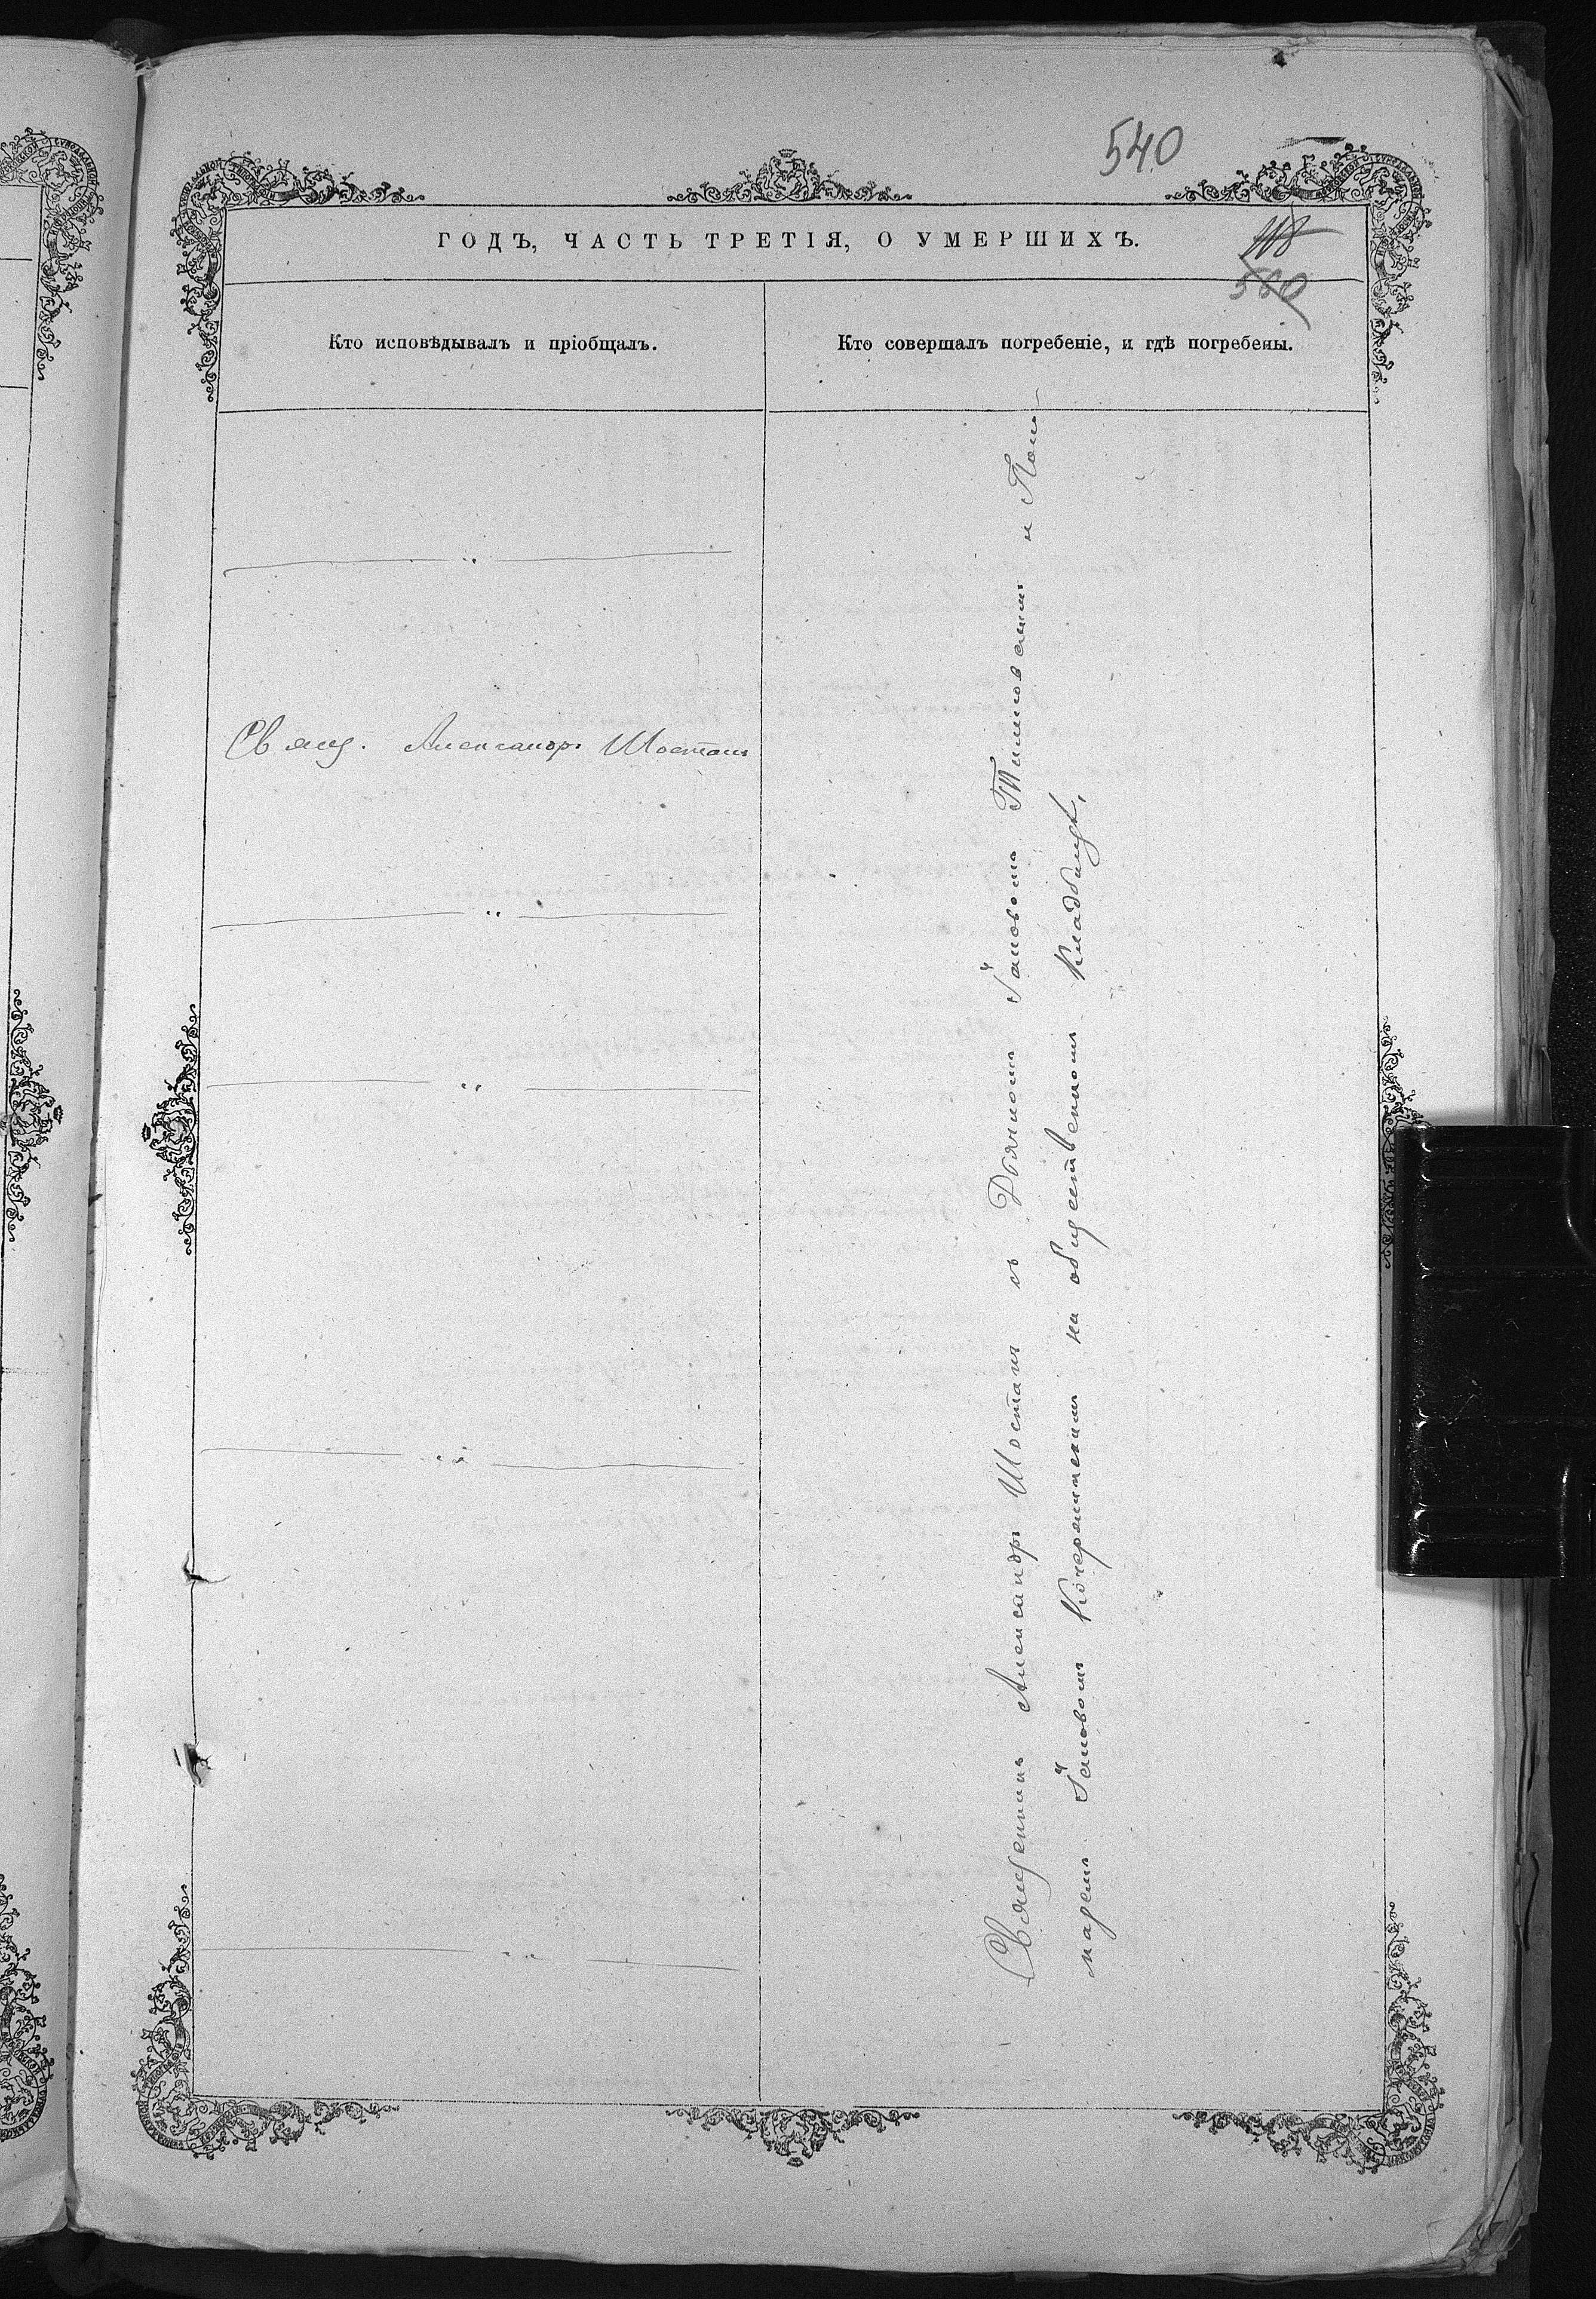 540
ГОДЪ, ЧАСТЬ ТРЕТІЯ, О УМЕРШИХЪ.
580
Кто исповѣдывалъ и пріобщалъ.
Кто совершалъ погребеніе, и гдѣ погребены.
Свящ. Александръ Шостакъ
Священникъ Александръ Шостакъ съ Дьякомъ Іаковомъ и Поно
маремъ Іаковомъ на общественномъ кладбищѣ,